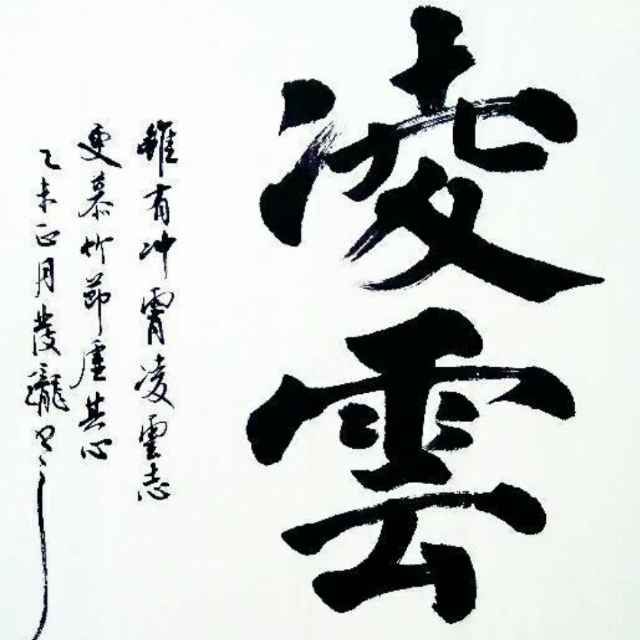 凌雲
雖有沖霄凌雲志
更慕竹節虛其心
乙未正月